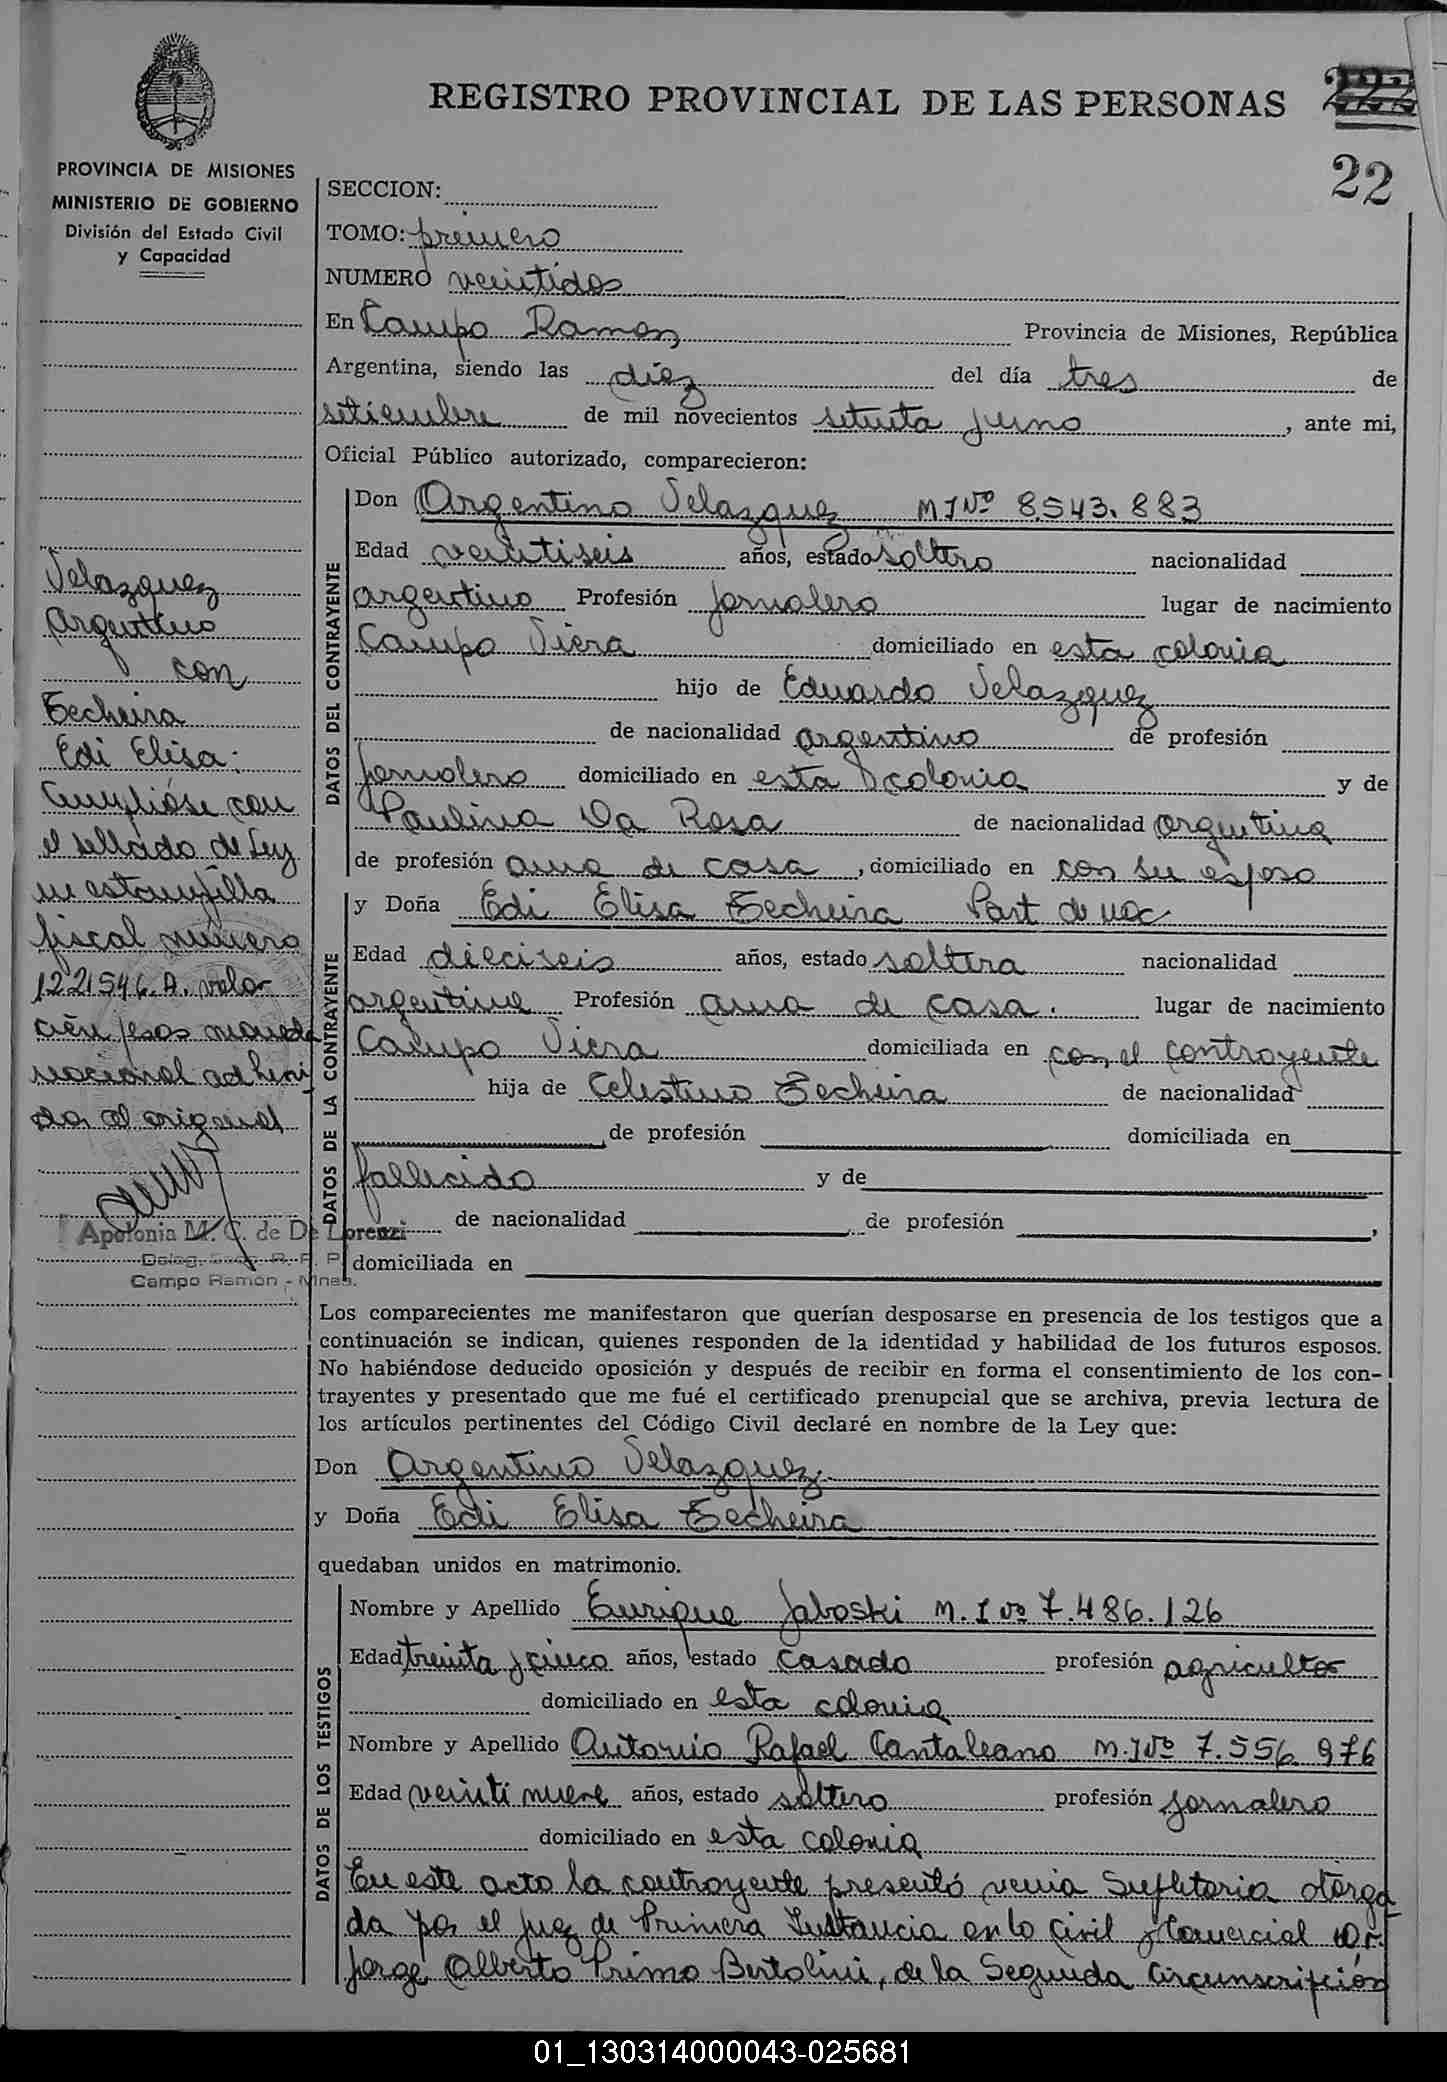 REGISTRO PROVINCIAL DE LAS PERSONAS
222
22
PROVINCIA DE MISIONES
MINISTERIO DE GOBIERNO
División del Estado Civil
y Capacidad
SECCION:
TOMO: primero
NUMERO veintidos
En Campo Ramon Provincia de Misiones, República
Argentina, siendo las diez del día tres de
setiembre de mil novecientos setenta y uno, ante mi,
Oficial Público autorizado, comparecieron:
DATOS DEL CONTRAYENTE
Don Argentino Velazquez M I Nº 8543.883
Edad veintiseis años, estado soltero nacionalidad
argentino Profesión jornalero lugar de nacimiento
Campo Viera domiciliado en esta colonia
hijo de Eduardo Velazquez
de nacionalidad argentino de profesión
jornalero domiciliado en esta colonia y de
Paulina Da Rosa de nacionalidad argentina
de profesión ama de casa, domiciliado en con su esposo
DATOS DE LA CONTRAYENTE
y Doña Edi Elisa Techeira Part de nac
Edad dieciseis años, estado soltera nacionalidad
argentina Profesión ama de casa. lugar de nacimiento
Campo Viera domiciliada en con el contrayente
hija de Celestino Techeira de nacionalidad
de profesión domiciliada en
fallecido y de
de nacionalidad de profesión ,
domiciliada en
Velazquez
Argentino
con
Techeira
Edi Elisa:
Cumplióse con
el sellado de Ley
en estampilla
fiscal número
122546.A. valor
cién pesos moneda
nacional adheri
da al original
Apolonia M. C. de De Lorenzi
Deleg. R. P. P.
Campo Ramón - Mnes.
Los comparecientes me manifestaron que querían desposarse en presencia de los testigos que a
continuación se indican, quienes responden de la identidad y habilidad de los futuros esposos.
No habiéndose deducido oposición y después de recibir en forma el consentimiento de los con-
trayentes y presentado que me fué el certificado prenupcial que se archiva, previa lectura de
los artículos pertinentes del Código Civil declaré en nombre de la Ley que:
Don Argentino Velazquez
y Doña Edi Elisa Techeira
quedaban unidos en matrimonio.
DATOS DE LOS TESTIGOS
Nombre y Apellido Enrique Jaboski M. I Nº 7.486.126
Edad treinta y cinco años, estado casado profesión agricultor
domiciliado en esta colonia
Nombre y Apellido Antonio Rafael Cantaleano M. I Nº 7.556.976
Edad veinti nueve años, estado soltero profesión jornalero
domiciliado en esta colonia
En este acto la contrayente presentó venia Supletoria otorga
da por el juez de Primera Instancia en lo Civil y Comercial Dr.
Jorge Alberto Primo Bertolini, de la Segunda Circunscripción
01_130314000043-025681